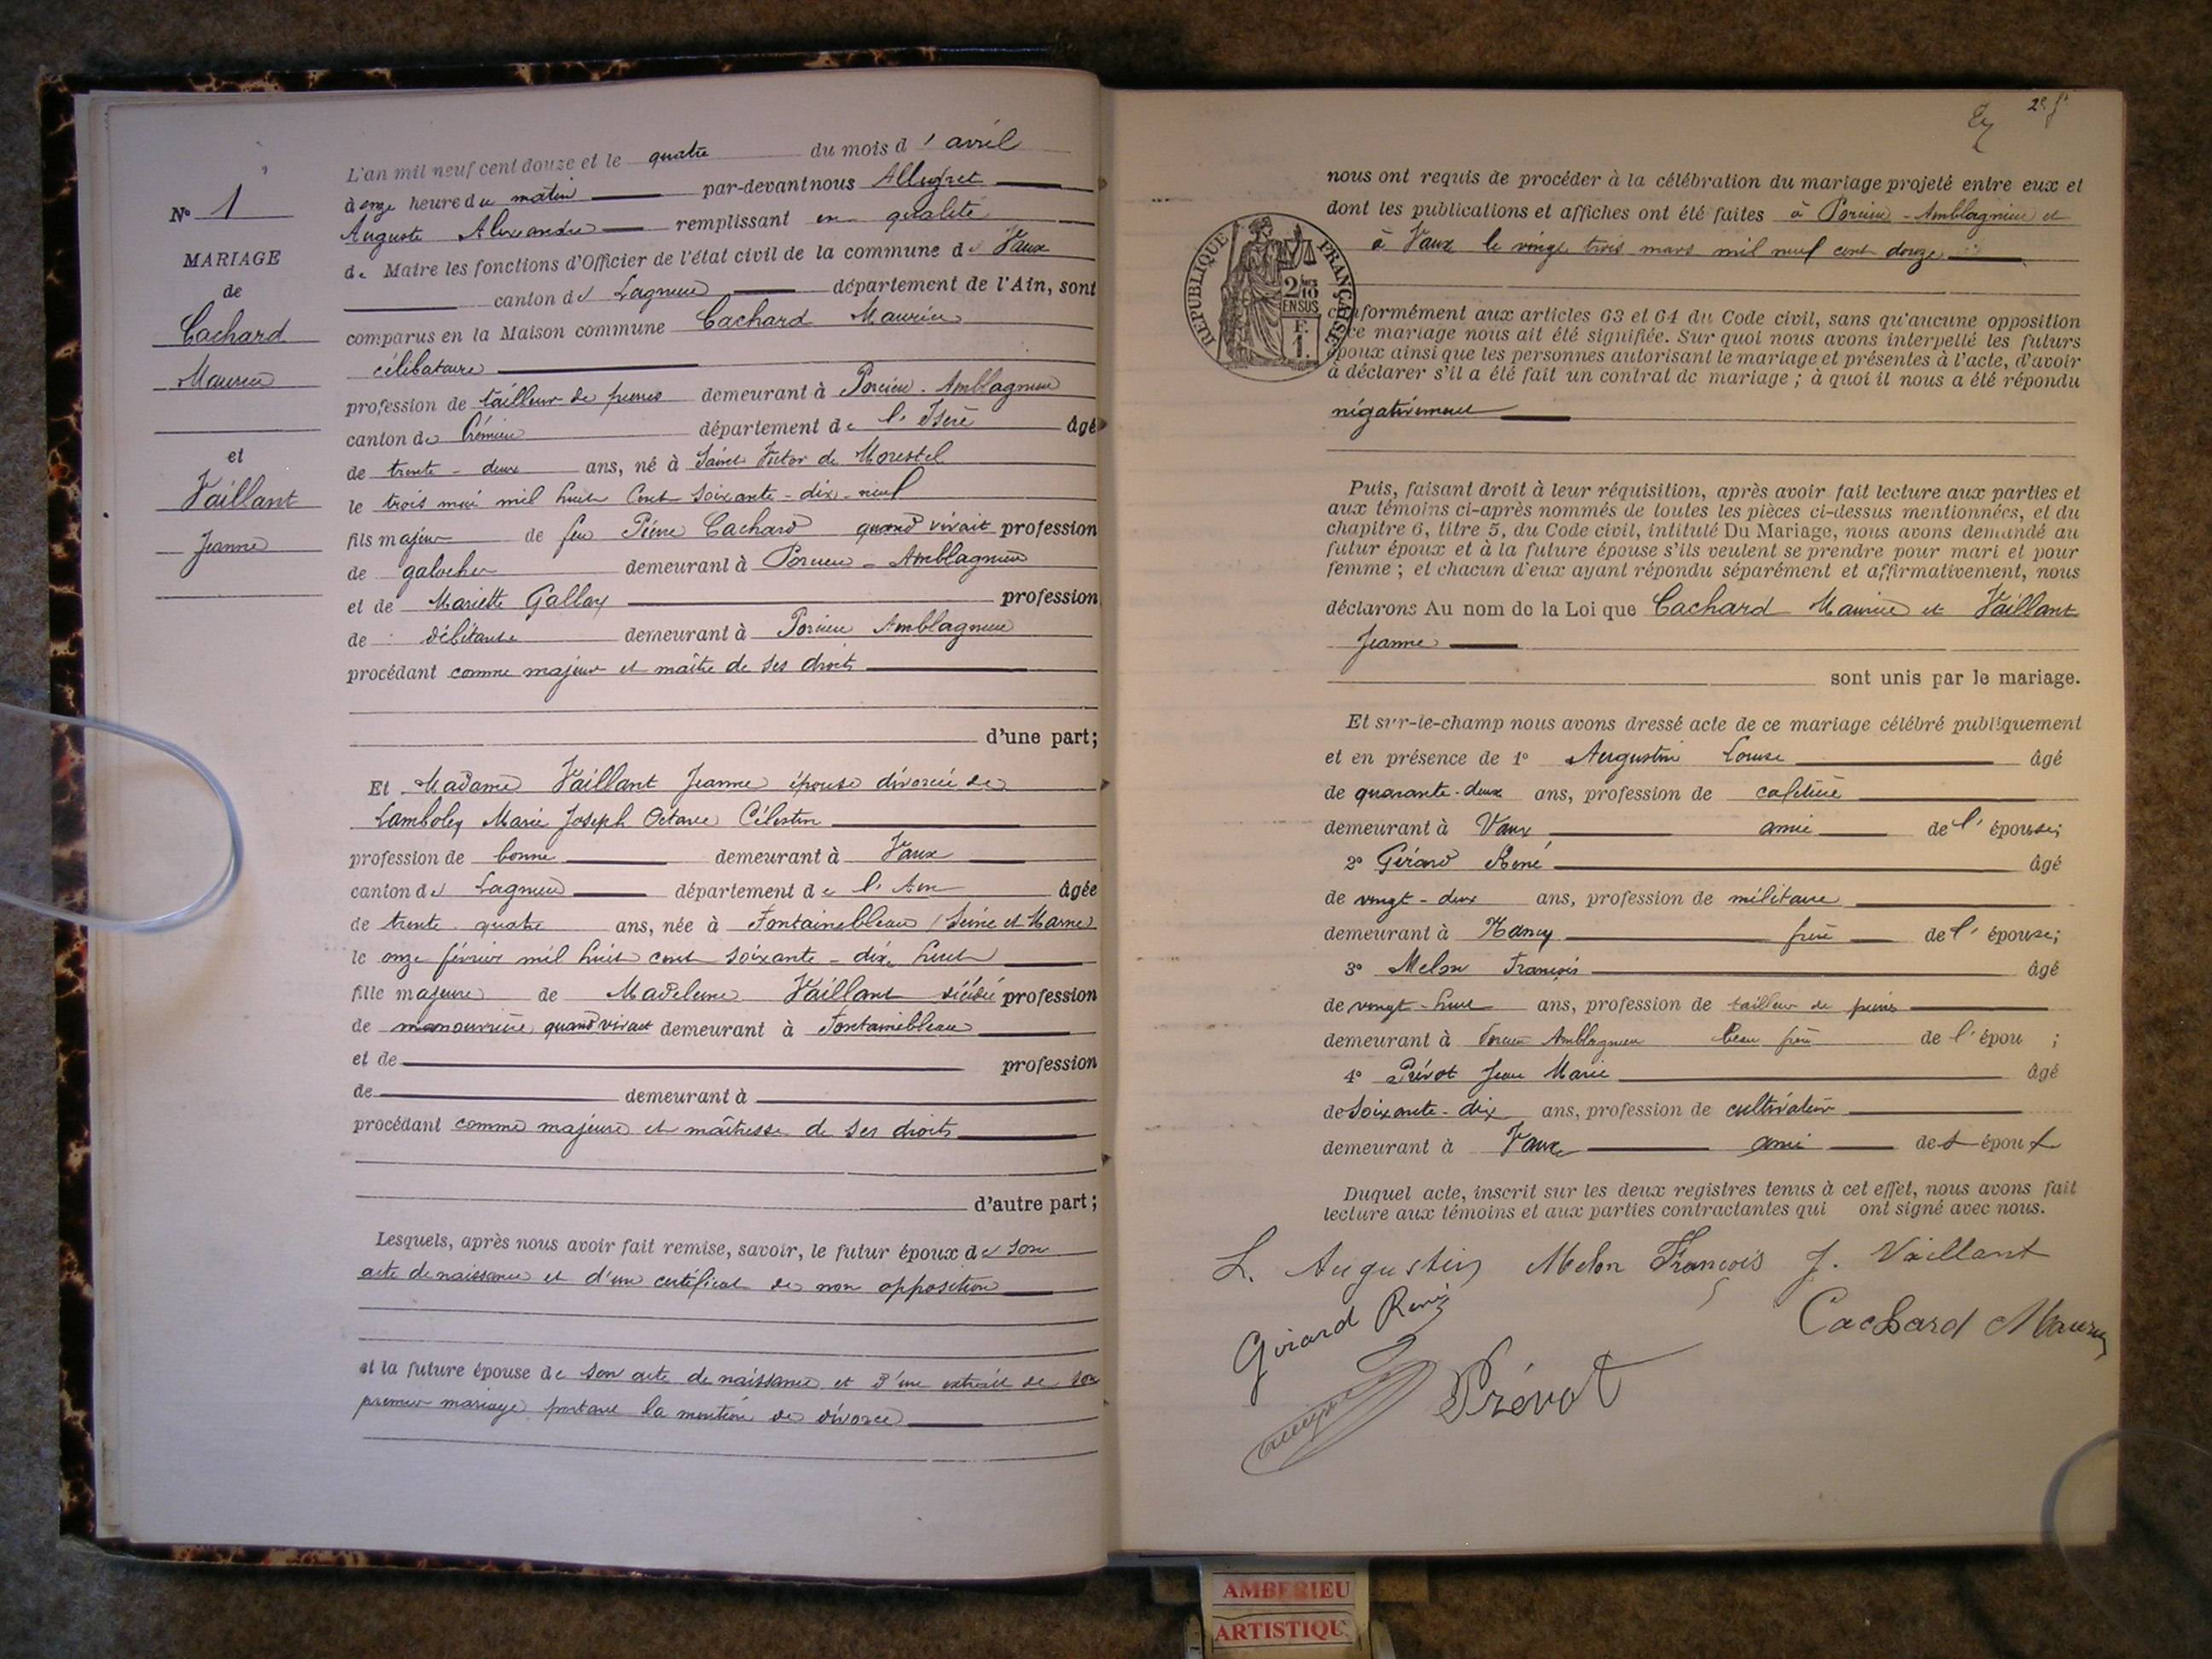 L'an mil neuf cent douze et le quatre du mois d' avril
à onze heure du matin par-devant nous
Auguste Alexandre remplissant en qualité
de Maire les fonctions d'Officier de l'état civil de la commune de Vaux
canton de Lagnieu département de l'Ain, sont
comparus en la Maison commune Cachard Maurice
célibataire
profession de tailleur de pierres demeurant à Porcieu-Amblagnieu
canton de Crémieu département de l'Isère âgé
de trente-deux ans, né à Saint Victor de Morestel
le trois mai mil huit cent soixante-dix-neuf
fils majeur de feu Pierre Cachard quand vivait profession
de galocher demeurant à Porcieu-Amblagnieu
et de Mariette Gallay profession
de débitante demeurant à Porcieu Amblagnieu
procédant comme majeur et maître de ses droits
d'une part;
Et Madame Vaillant Jeanne épouse divorcée de
Lamboley Marie Joseph Octave Célestin
profession de bonne demeurant à Vaux
canton de Lagnieu département de l'Ain âgée
de trente-quatre ans, née à Fontainebleau (Seine et Marne)
le onze février mil huit cent soixante-dix huit
fille majeure de Madeleine Vaillant décédée profession
de manouvrière quand vivait demeurant à Fontainebleau
et de profession
de demeurant à
procédant comme majeure et maîtresse de ses droits
d'autre part;
Lesquels, après nous avoir fait remise, savoir, le futur époux de son
acte de naissance et d'un certificat de non opposition
et la future épouse de son acte de naissance et d'un extrait de son
premier mariage portant la mention de divorce
N° 1
MARIAGE
de
Cachard
Maurice
et
Vaillant
Jeanne
nous ont requis de procéder à la célébration du mariage projeté entre eux et
dont les publications et affiches ont été faites à Porcieu-Amblagnieu et
à Vaux le vingt trois mars mil neuf cent douze
REPUBLIQUE FRANÇAISE
2/10
EN SUS
F.
1.
conformément aux articles 63 et 64 du Code civil, sans qu'aucune opposition
ce mariage nous ait été signifiée. Sur quoi nous avons interpellé les futurs
époux ainsi que les personnes autorisant le mariage et présentes à l'acte, d'avoir
à déclarer s'il a été fait un contrat de mariage; à quoi il nous a été répondu
négativement
Puis, faisant droit à leur réquisition, après avoir fait lecture aux parties et
aux témoins ci-après nommés de toutes les pièces ci-dessus mentionnées, et du
chapitre 6, titre 5, du Code civil, intitulé Du Mariage, nous avons demandé au
futur époux et à la future épouse s'ils veulent se prendre pour mari et pour
femme; et chacun d'eux ayant répondu séparément et affirmativement, nous
déclarons Au nom de la Loi que Cachard Maurice et Vaillant
Jeanne
sont unis par le mariage.
Et sur-le-champ nous avons dressé acte de ce mariage célébré publiquement
et en présence de 1° Augustin Louise âgé
de quarante-deux ans, profession de cafetière
demeurant à Vaux amie de l'épouse;
2° Gérard René âgé
de vingt-deux ans, profession de militaire
demeurant à Nancy frère de l'épouse;
3° Melon François âgé
de vingt-huit ans, profession de tailleur de pierres
demeurant à Porcieu Amblagnieu beau frère de l'épou ;
4° Prévot Jean Marie âgé
de soixante-dix ans, profession de cultivateur
demeurant à Vaux ami de épou
Duquel acte, inscrit sur les deux registres tenus à cet effet, nous avons fait
lecture aux témoins et aux parties contractantes qui ont signé avec nous.
L. Augustin Melon François J. Vaillant
Girard René Cachard Maurice
Prévot
AMBERIEU
ARTISTIQU